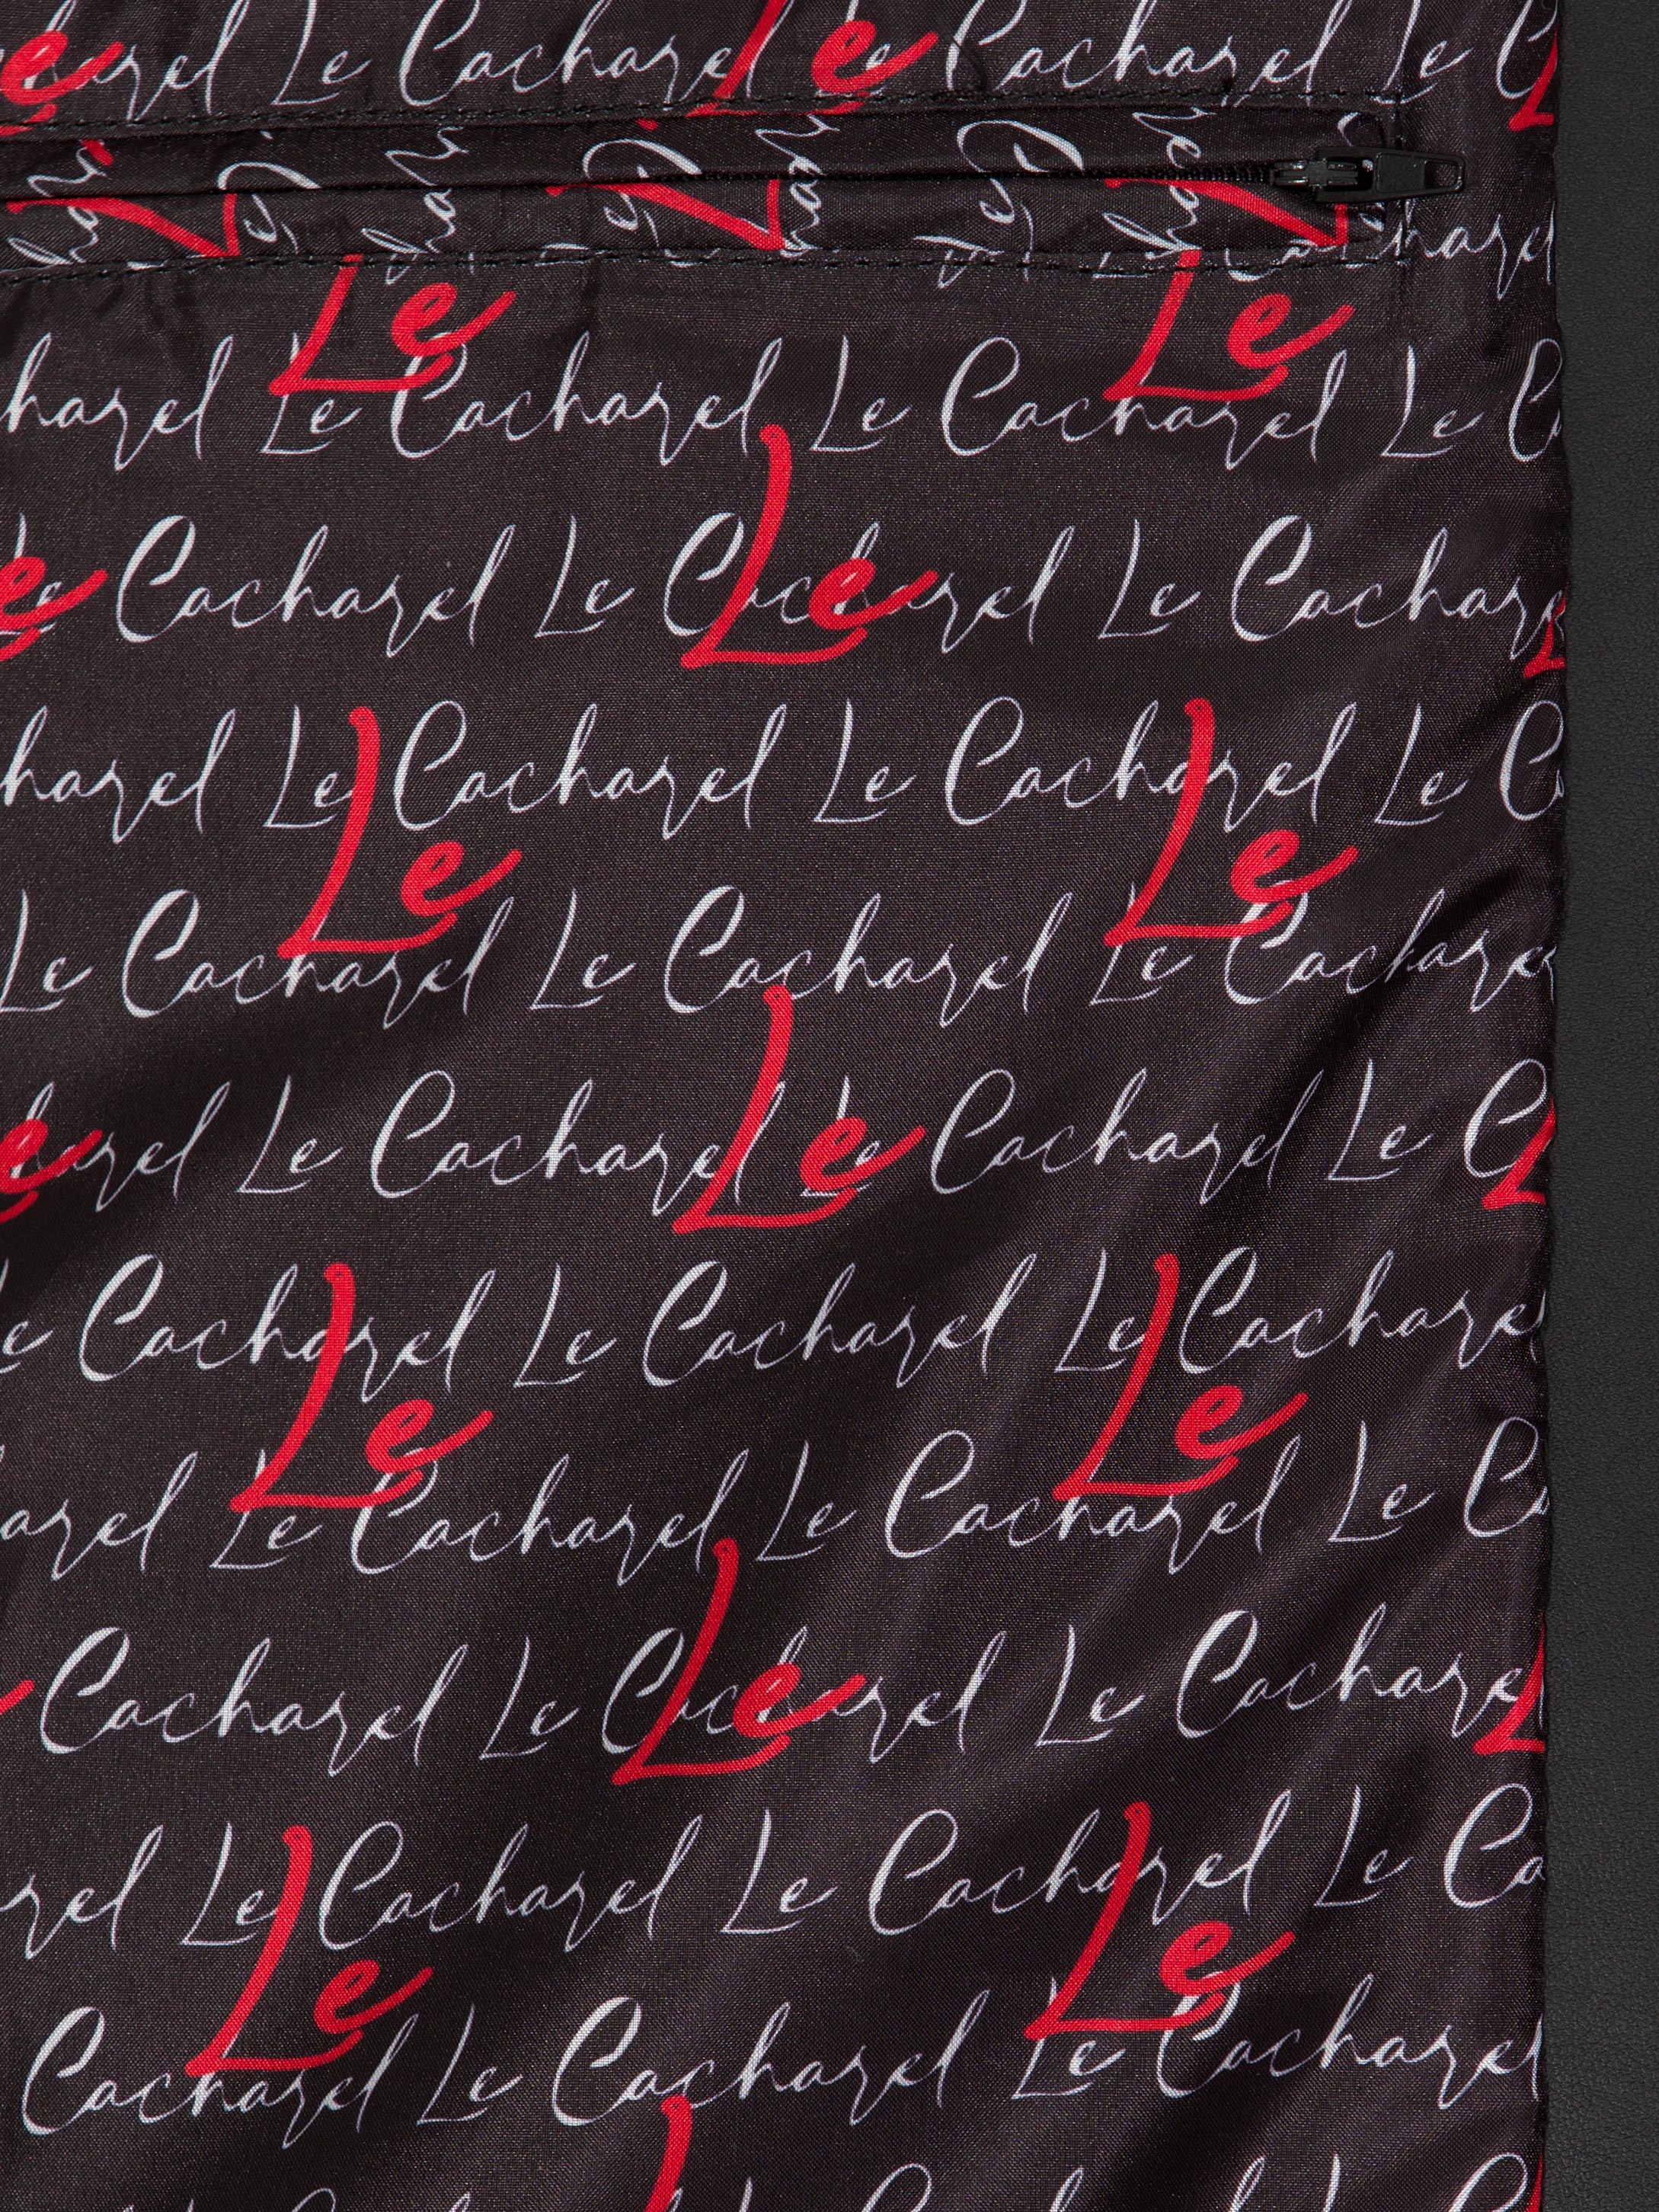 Le Cacharel Le Cacharel Le
Le
Le Le
Cacharel Le Cacharel Le Cacharel Le
Le
Le Cacharel Le Cacharel Le Cacharel
Le Le
Cacharel Le Cacharel Le Cacharel Le
Le Le
Le Cacharel Le Cacharel Le Cacharel
Le
Le Cacharel Le Cacharel Le
Le Le
Le Cacharel Le Cacharel Le Cacharel
Le Le
Le Cacharel Le Cacharel Le
Le
Cacharel Le Cacharel Le Cacharel
Le Le
Le Cacharel Le Cacharel Le
Le Le
Cacharel Le Cacharel Le Cacharel